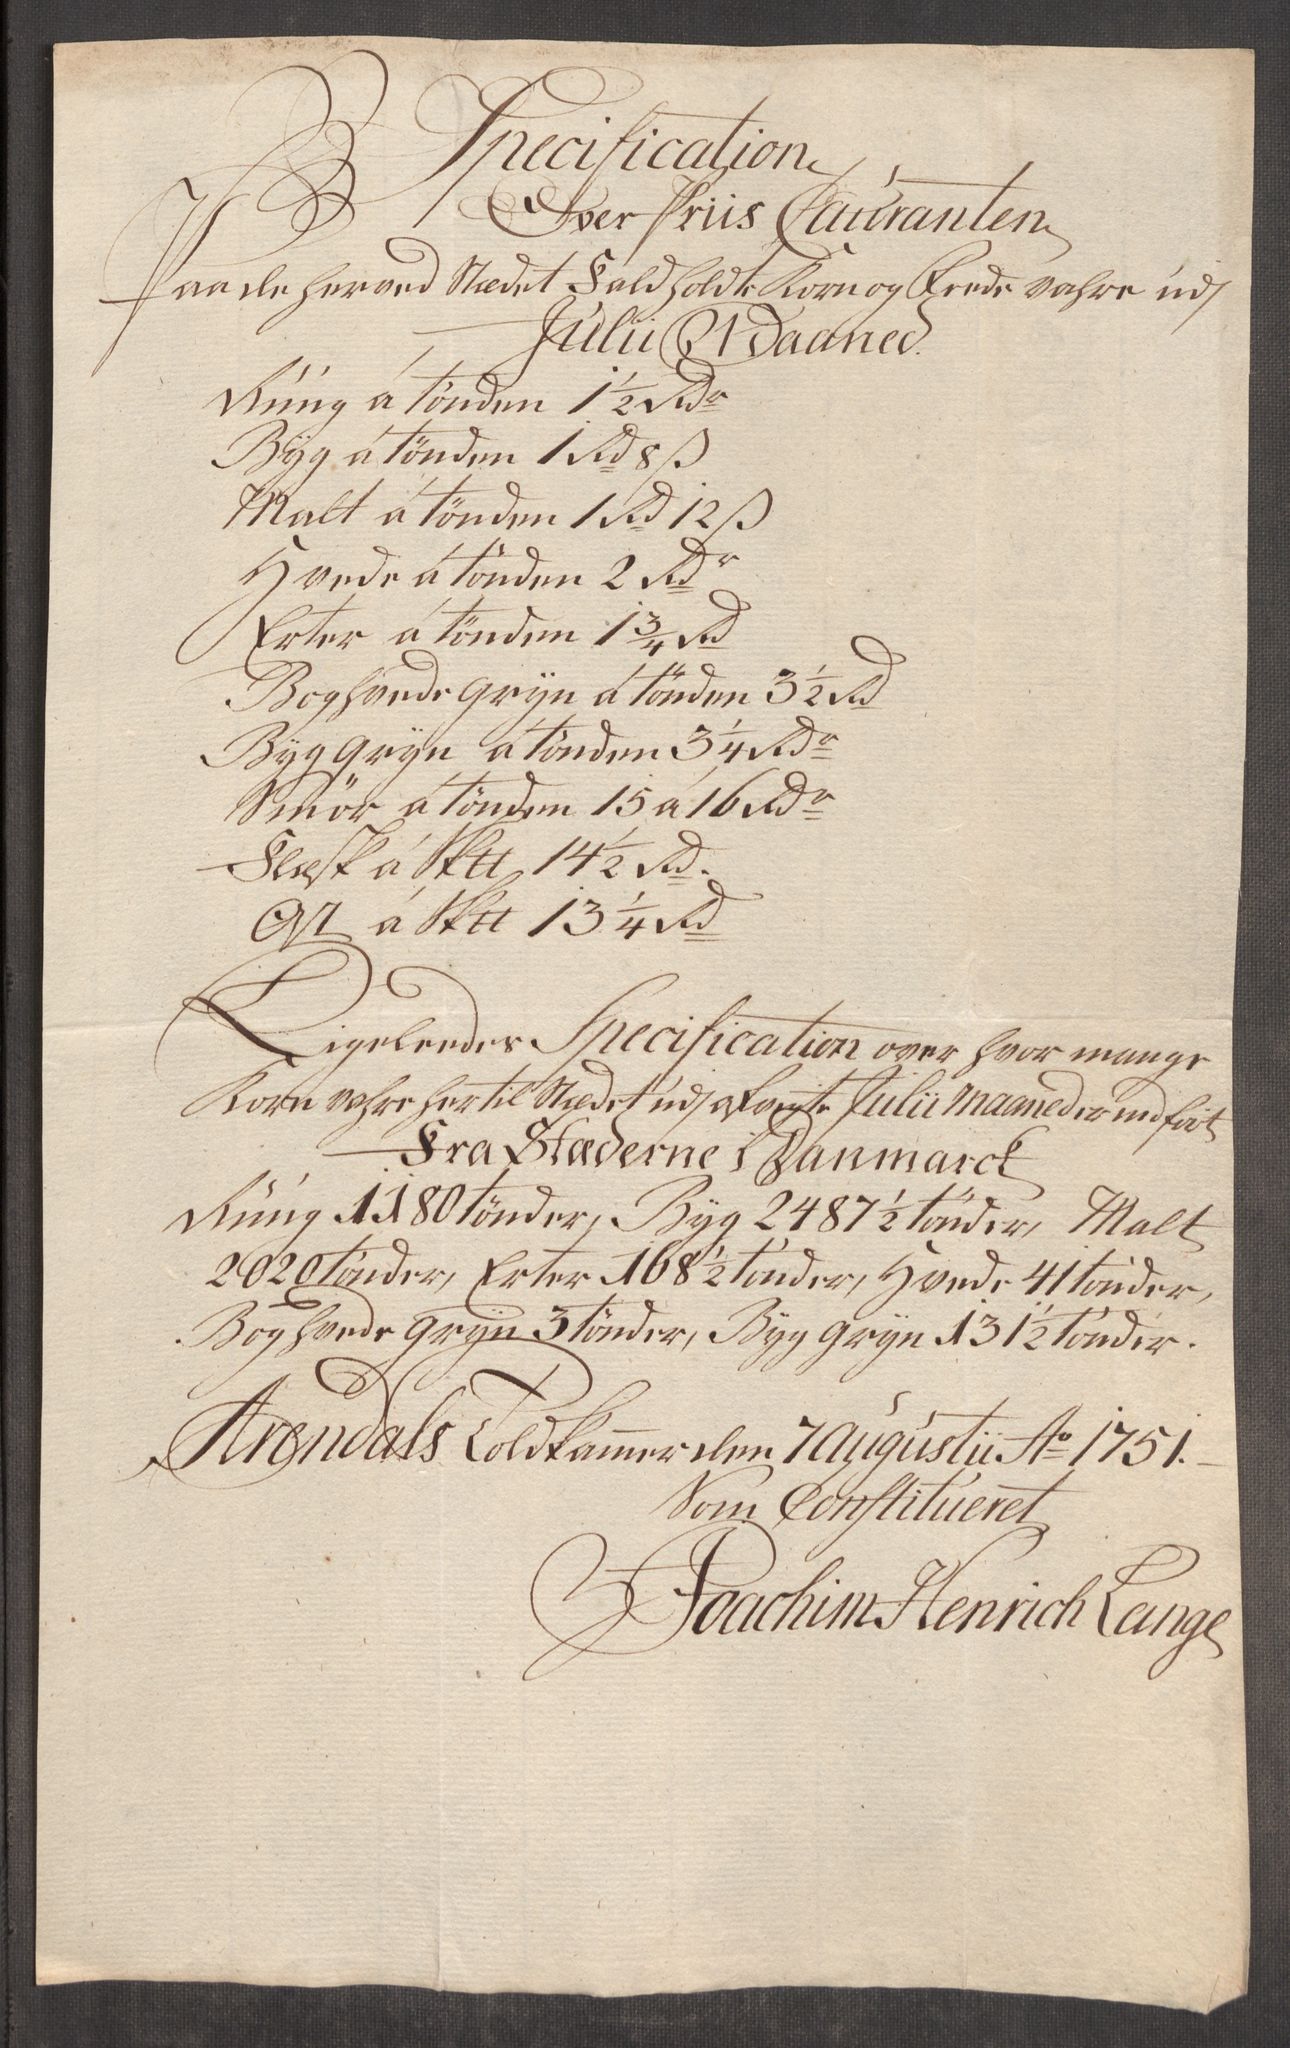 Specification
Over Priis Couranten
Paa de her ved Stædet Fald holdte Korn og Fede vahre udj
Julii Maaned.
Rüüg á tönden 1 1/2 Rdr
Byg á tönden 1 Rd 8 ß
Malt á tönden 1 Rd 12 ß
Hvede á tönden 2 Rdr
Erter á tönden 1 3/4 Rd
Boghvede grÿn á tönden 3 1/2 Rd
Byg grÿn á tönden 3 1/4 Rdr
Smör á tönden 15 á 16 Rdr
Flesk á Sktt 14 1/2 Rd.
Ost á Sktt 13 1/4 Rd
Ligeleedes Specification over hvor mange
Korn vahre her til Stædet udj Julii Maaned er indført
Fra Stæderne i Danmarck
Rüüg 1180 tønder, Byg 2487 1/2 tønder, Malt
2020 tønder, Erter 168 1/2 tønder, Hvede 41 tønder,
Boghvede grÿn 3 tønder, Byg grÿn 13 1/2 tønder.
Arendals Toldkammer den 7 Augustii Ao 1751.
Som Constitueret
Joachim Henrich Lange